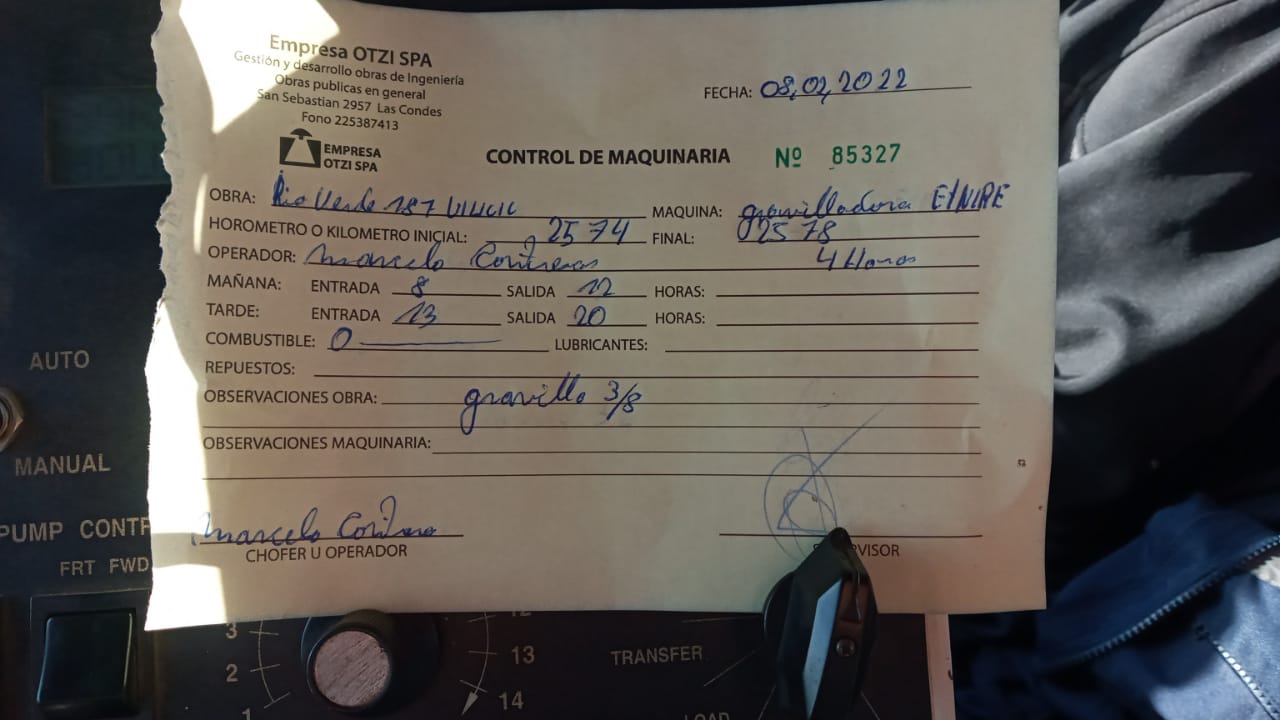 Empresa OTZI SPA
Gestión y desarrollo obras de Ingeniería
Obras publicas en general
San Sebastian 2957 Las Condes
Fono 225387413
EMPRESA
OTZI SPA
FECHA: 08,02,2022
CONTROL DE MAQUINARIA Nº 85327
OBRA: Rio Verde 187 MAQUINA: gravilladora E/NIRE
HOROMETRO O KILOMETRO INICIAL: 2574 FINAL: 02578
OPERADOR: Marcelo Contreras 4 Horas
MAÑANA: ENTRADA 8 SALIDA 12 HORAS:
TARDE: ENTRADA 13 SALIDA 20 HORAS:
COMBUSTIBLE: 0 LUBRICANTES:
REPUESTOS:
OBSERVACIONES OBRA: gravilla 3/8
OBSERVACIONES MAQUINARIA:
Marcelo
CHOFER U OPERADOR
AUTO
MANUAL
PUMP CONTR
FRT FWD
3
2
1
12
13
14
TRANSFER
LOAD